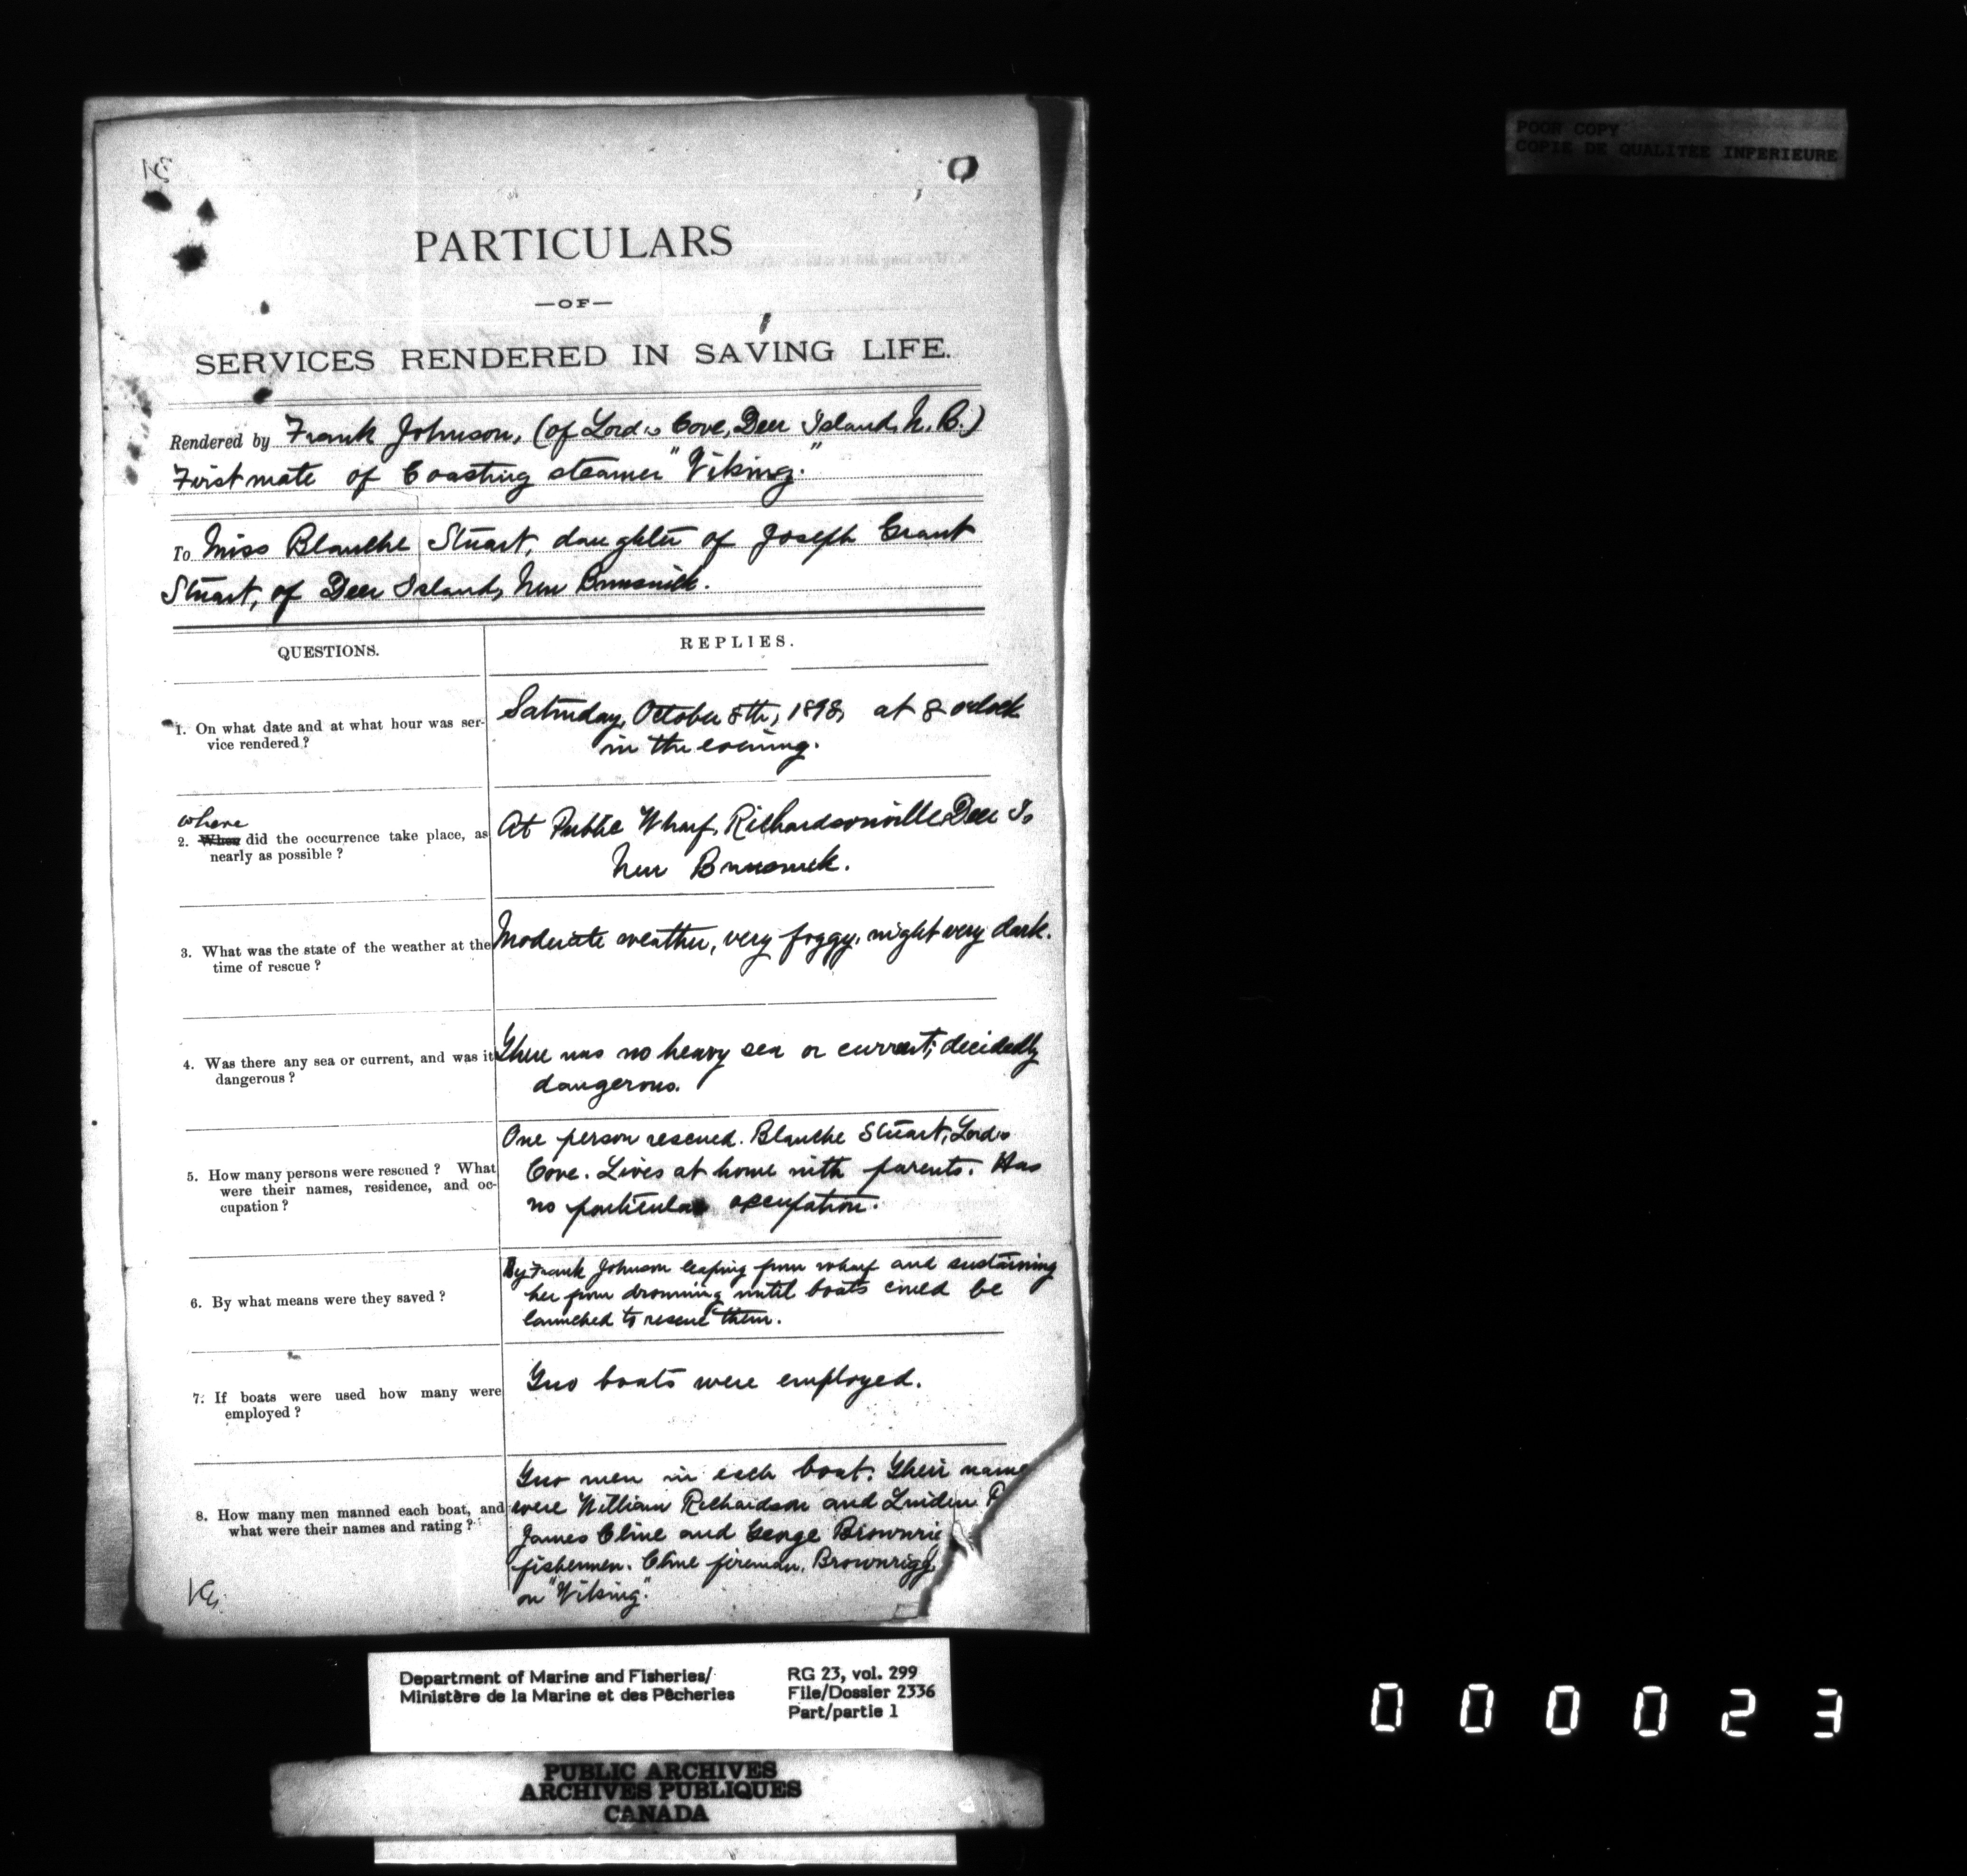 POOR COPY
COPIE DE QUALITEE INFERIEURE
PARTICULARS
—OF—
SERVICES RENDERED IN SAVING LIFE.
Rendered by Frank Johnson, (of Lord's Cove, Deer Island, N. B.)
First mate of Coasting steamer "Viking."
To Miss Blanche Stuart, daughter of Joseph Grant
Stuart, of Deer Island, New Brunswick.
QUESTIONS.
REPLIES.
1. On what date and at what hour was ser-
vice rendered?
Saturday, October 8th, 1898, at 8 o'clock
in the evening.
where
2. When did the occurrence take place, as
nearly as possible?
At Public Wharf, Richardsonville, Deer Is
New Brunswick.
3. What was the state of the weather at the
time of rescue?
Moderate weather, very foggy, night very dark.
4. Was there any sea or current, and was it
dangerous?
There was no heavy sea or current; decidedly
dangerous.
5. How many persons were rescued? What
were their names, residence, and oc-
cupation?
One person rescued. Blanche Stuart, Lord's
Cove. Lives at home with parents. Has
no particular occupation.
6. By what means were they saved?
By Frank Johnson leaping from wharf and sustaining
her from drowning until boats could be
launched to rescue them.
7. If boats were used how many were
employed?
Two boats were employed.
8. How many men manned each boat, and
what were their names and rating?
Two men in each boat. Their name
were William Richardson and Linden R
James Cline and George Brownrig
fishermen. Cline fireman, Brownrigg
on "Viking".
Department of Marine and Fisheries/
Ministère de la Marine et des Pêcheries
RG 23, vol. 299
File/Dossier 2336
Part/partie 1
PUBLIC ARCHIVES
ARCHIVES PUBLIQUES
CANADA
000023